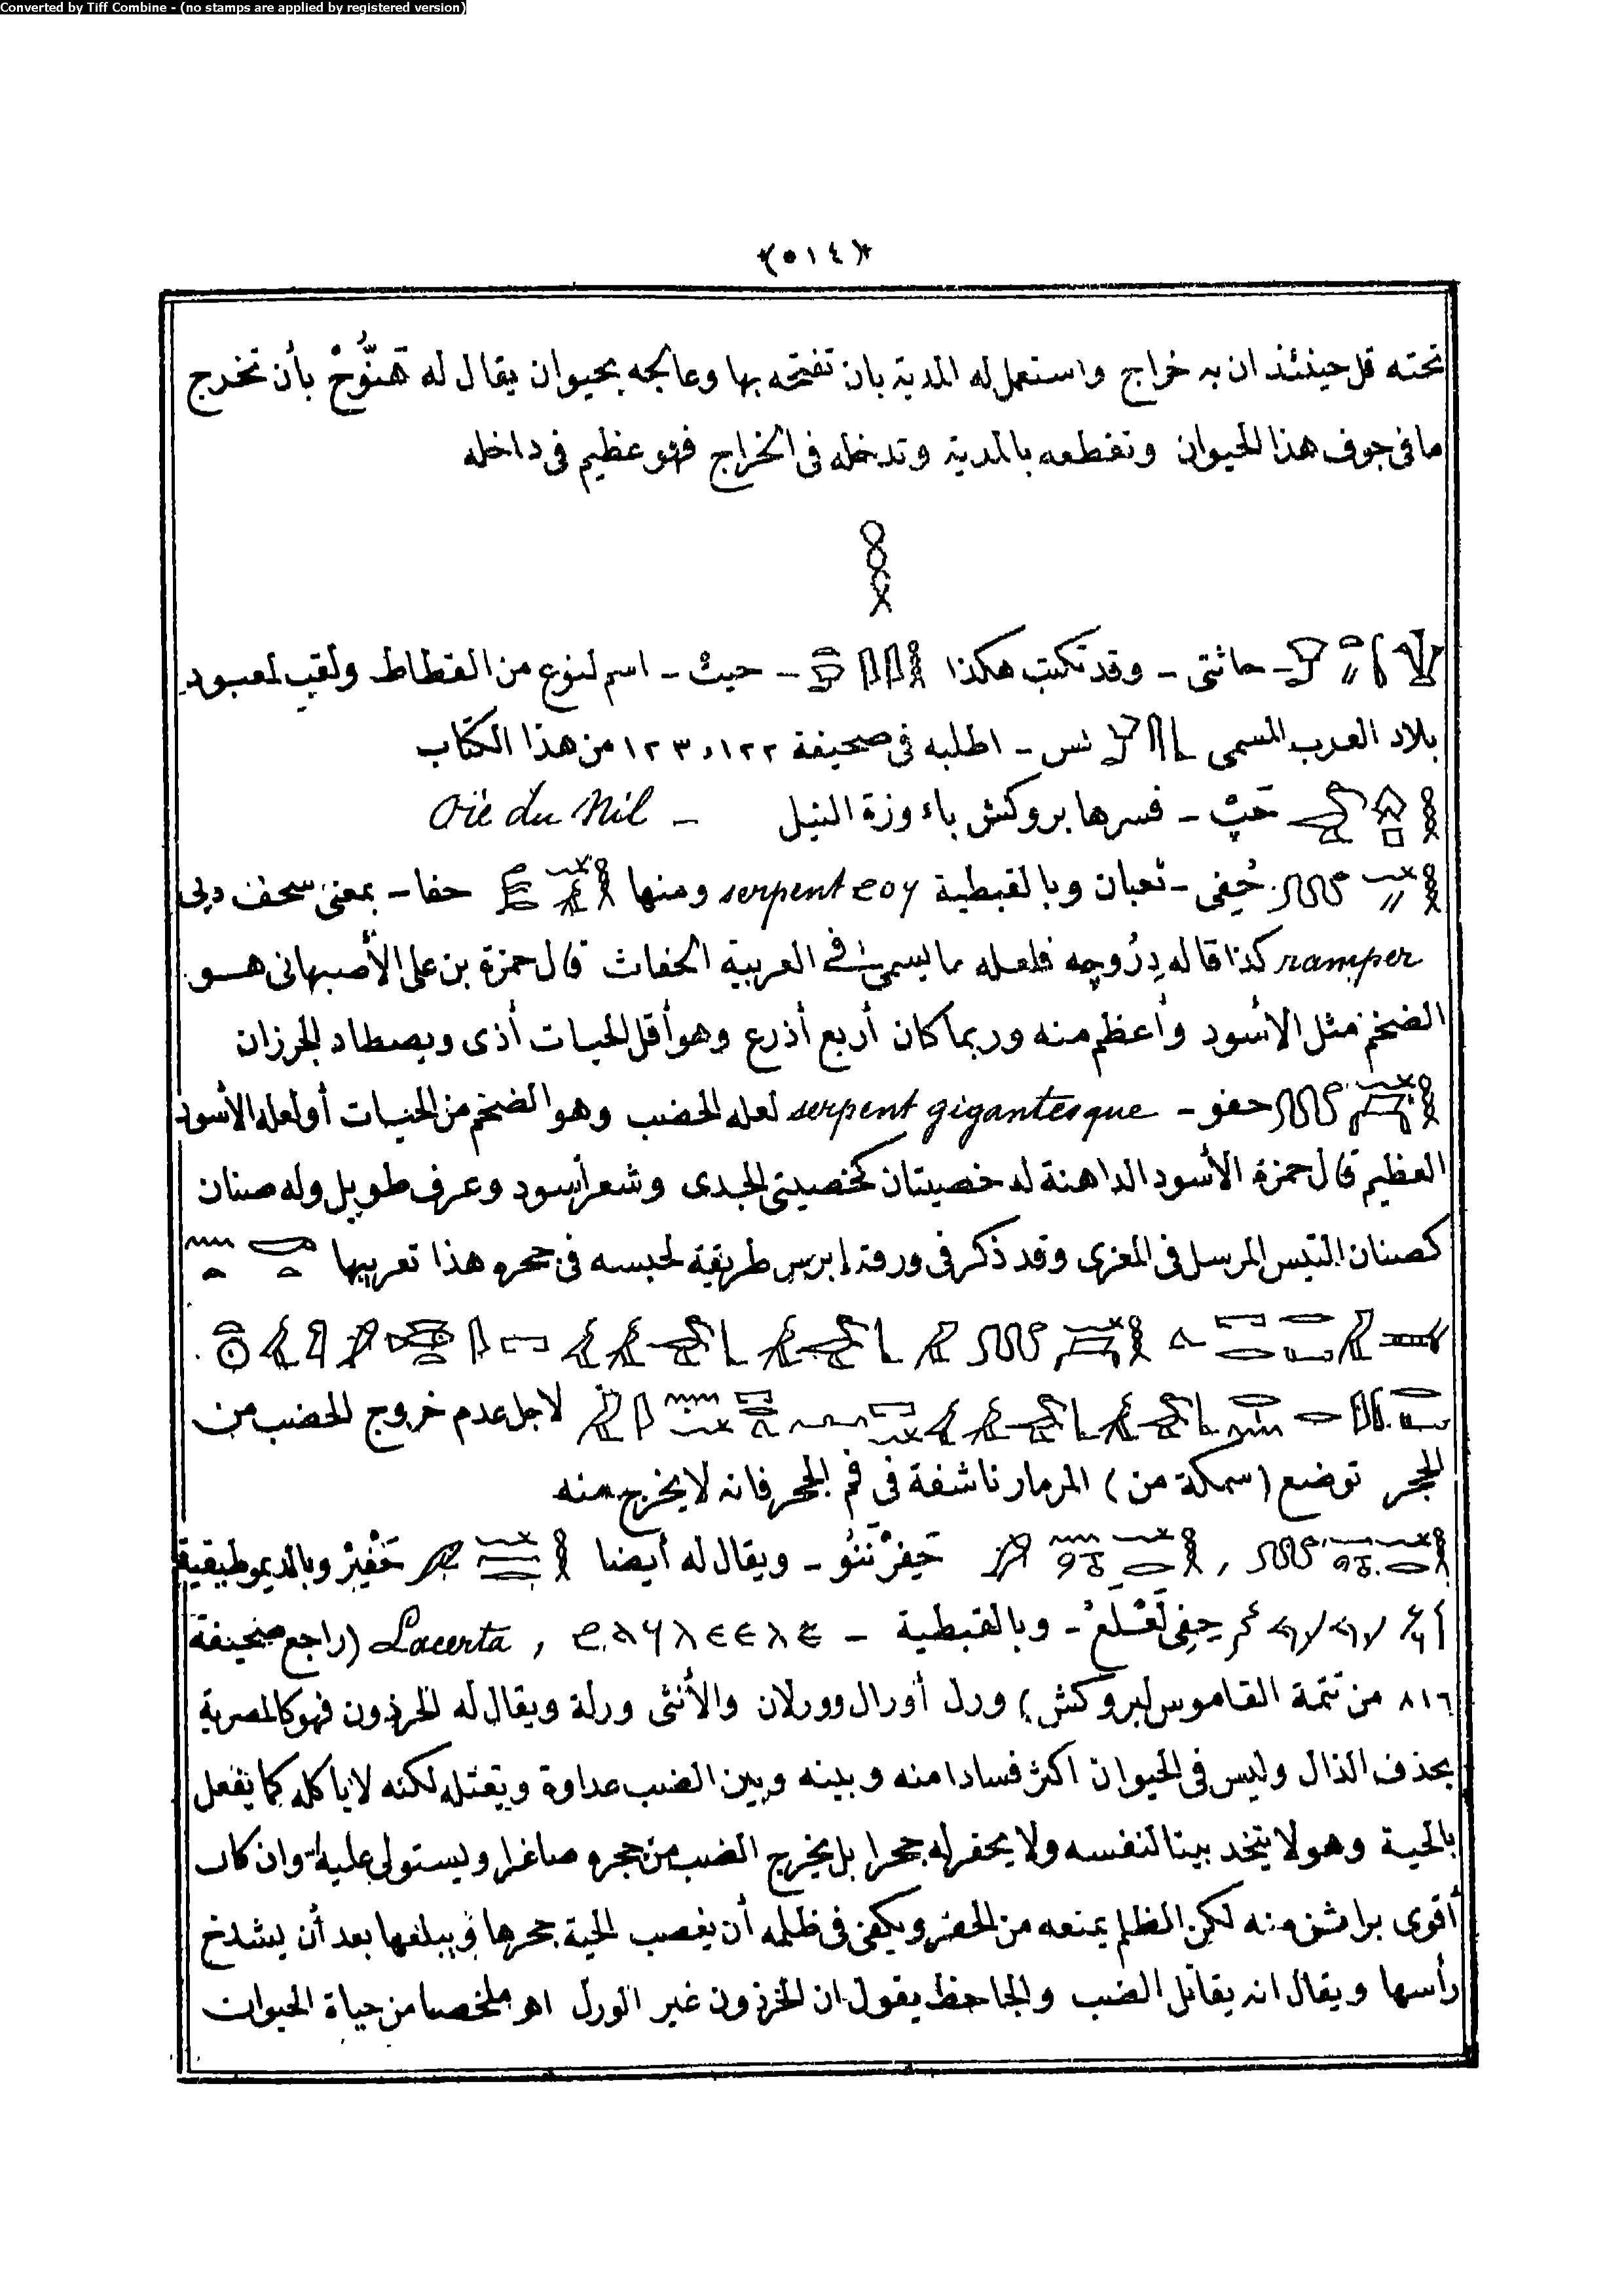 Converted by Tiff Combine - (no stamps are applied by registered version)
(٥١٤)
تحته قل حينئذ ان به خراج واستعمل له المدية بان تفتحه بها وعالجه بحيوان يقال له هَنُّوخْ بأن تخرج
ما فى جوف هذا الحيوان وتقطعه بالمدية وتدخله فى الخراج فهو عظيم فى داخله
حاثتى - وقد تكتب هكذا - حيث - اسم لنوع من القطاط ولقب لمعبود
بلاد العرب المسمى بس - اطلبه فى صحيفة ١٢٢ و ١٢٣ من هذا الكتاب
حَپْ - فسرها بروكش باءوزة النيل - Oie du Nil
حُفِى - ثعبان وبالقبطية ϩⲟϥ serpent ومنها حفا - بمعنى سحف دبى
ramper كذا قاله دِرُوچه فلعله ما يسمى فى العربية الحفاث قال حمزة بن على الأصبهانى هو
الضخم مثل الأسود وأعظم منه وربما كان أربع أذرع وهو أقل الحيات أذى ويصطاد الجرزان
حفو - serpent gigantesque لعله الحضب وهو الضخم من الحيات أو لعله الاسود
العظيم قال حمزة الأسود الداهنة له خصيتان كخصيتى الجدى وشعر أسود وعرف طويل وله صنان
كصنان التيس المرسل فى المعزى وقد ذكر فى ورقة إبرس طريقة لحبسه فى جحره هذا تعريبها
لاجل عدم خروج الحضب من
الجحر توضع (سمكة من) المرمار ناشفة فى فم الجحر فانه لا يخرج منه
حَفِرْنَنُو - ويقال له أيضا حَفْيِرْ وبالديموطيقية
حِفِى لَعْلَعْ - وبالقبطية - ϩⲁϥⲗⲉⲉⲗⲉ , Lacerta (راجع صحيفة
٨١٦ من تتمة القاموس لبروكش) ورل أورال وورلان والأنثى ورلة ويقال له الحرذون فهو كالمصرية
بحذف الذال وليس فى الحيوان اكثر فسادا منه وبينه وبين الضب عداوة ويقتله لكنه لا يأكله كما يفعل
بالحية وهو لا يتخد بيتا لنفسه ولا يحفر له جحرا بل يخرج الضب من جحره صاغرا ويستولى عليه وان كان
أقوى براثن منه لكن الظلم يمنعه من الحفر ويكفى فى ظلمه أن يغصب الحية جحرها ويبلعها بعد أن يشدخ
رأسها ويقال انه يقاتل الضب والجاحظ يقول ان الحرذون غير الورل اهـ ملخصا من حياة الحيوان